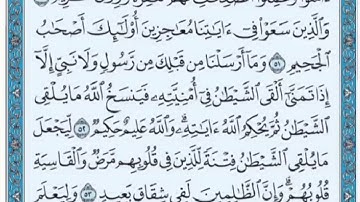 وَٱلَّذِينَ سَعَوْا۟ فِىٓ ءَايَـٰتِنَا مُعَـٰجِزِينَ أُو۟لَـٰٓئِكَ أَصْحَـٰبُ
ٱلْجَحِيمِ ٥١ وَمَآ أَرْسَلْنَا مِن قَبْلِكَ مِن رَّسُولٍ وَلَا نَبِىٍّ إِلَّآ
إِذَا تَمَنَّىٰٓ أَلْقَى ٱلشَّيْطَـٰنُ فِىٓ أُمْنِيَّتِهِۦ فَيَنسَخُ ٱللَّهُ مَا يُلْقِى
ٱلشَّيْطَـٰنُ ثُمَّ يُحْكِمُ ٱللَّهُ ءَايَـٰتِهِۦ ۗ وَٱللَّهُ عَلِيمٌ حَكِيمٌ ٥٢ لِّيَجْعَلَ
مَا يُلْقِى ٱلشَّيْطَـٰنُ فِتْنَةً لِّلَّذِينَ فِى قُلُوبِهِم مَّرَضٌ وَٱلْقَاسِيَةِ
قُلُوبُهُمْ ۗ وَإِنَّ ٱلظَّـٰلِمِينَ لَفِى شِقَاقٍۭ بَعِيدٍ ٥٣ وَلِيَعْلَمَ